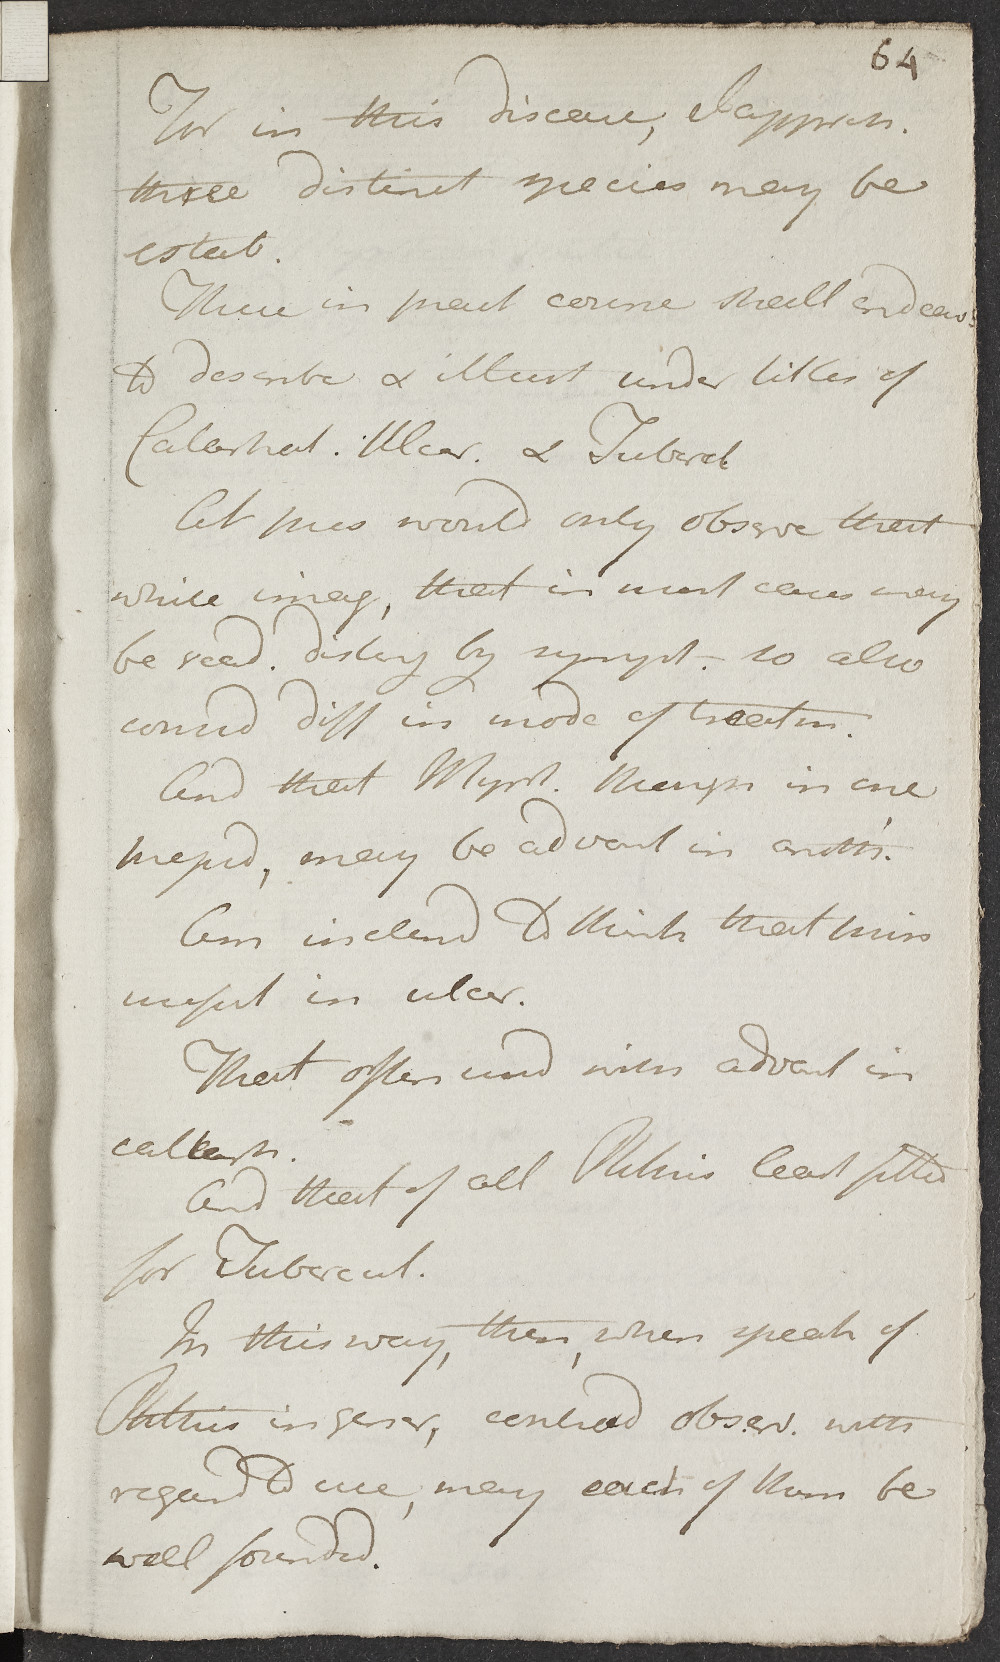 64
For in this disease, I appreh.
three distinct species may be
estab.
These in pract course shall endeav:
to describe & illust under titles of
Catarrhal. Ulcer. & Tubercl
At pres would only observe that
while imag, that in most cases may
be read. disting by sympt. so also
consid diff in mode of treatm.
And that Myrrh. though in one
prejud, may be advant in anoth.
Am inclend to think that princ
useful in ulcer.
That often used with advant in
catarrh.
And that of all Phthisis least fitted
for Tubercul.
In this way, then, when speak of
Phthisis in gener, contrad observ. with
regard to use, may each of them be
well founded.